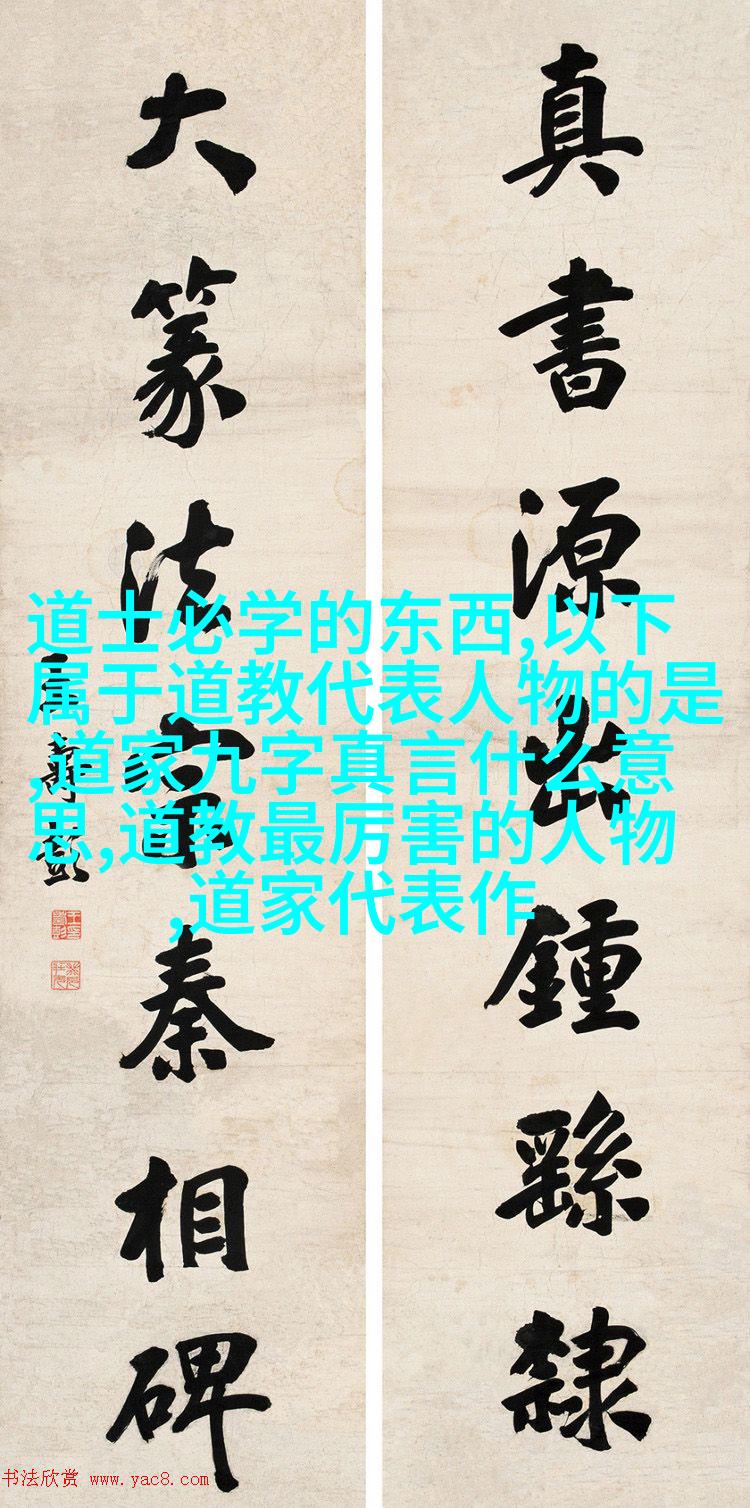 真書源出鍾繇隸
大篆法秦相碑
王壽彭
道士必学的东西,以下
属于道教代表人物的是
,道家九字真言什么意
思,道教最厉害的人物
,道家代表作
书法欣赏 www.yac8.com